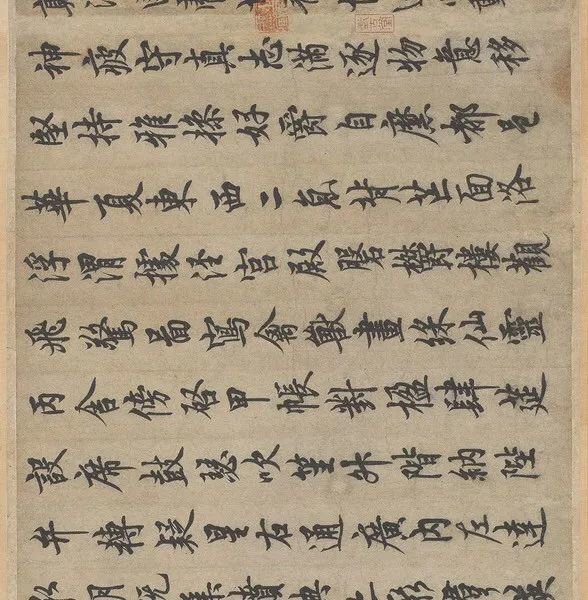 神疲守真志滿逐物意移
堅持雅操好爵自縻都邑
華夏東西二京背芒面洛
浮渭據涇宮殿磐鬱樓觀
飛驚啚寫禽獸畫綵仙靈
丙舍傍啓甲帳對楹肆筵
設席鼓瑟吹笙升階納陛
弁轉疑星右通廣內左達